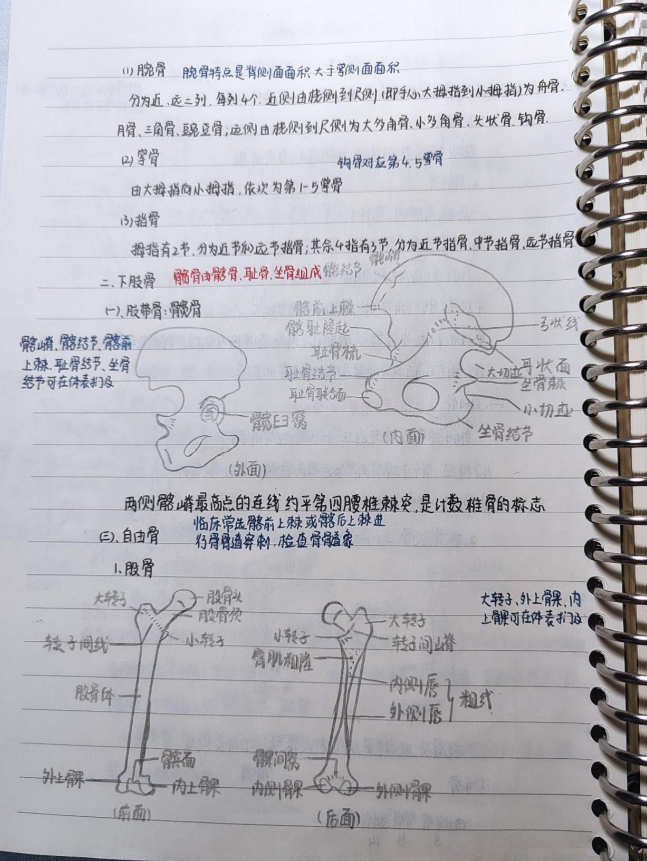 (1) 腕骨 腕骨特点是背侧面面积大于掌侧面面积
分为近、远二列，每列4个，近侧由桡侧到尺侧(即手从大拇指到小拇指)为舟骨、
月骨、三角骨、豌豆骨；远侧由桡侧到尺侧为大多角骨、小多角骨、头状骨、钩骨。
(2) 掌骨 钩骨对应第4、5掌骨
由大拇指向小拇指，依次为第1-5掌骨
(3) 指骨
拇指有2节，分为近节和远节指骨；其余4指有3节，分为近节指骨、中节指骨、远节指骨
二、下肢骨 髋骨由髂骨、耻骨、坐骨组成
(一)、肢带骨：髋骨
髂嵴、髂结节、髂前
上棘、耻骨结节、坐骨
结节可在体表扪及
髋臼窝
(外面)
髂结节
髂前上棘
髂耻隆起
耻骨梳
耻骨结节
耻骨联合面
弓状线
耳状面
大切迹
坐骨棘
小切迹
坐骨结节
(内面)
两侧髂嵴最高点的连线约平第四腰椎棘突，是计数椎骨的标志
(二)、自由骨 临床常选髂前上棘或髂后上棘进
行骨髓穿刺，检查骨髓象
1、股骨
大转子
股骨头
股骨颈
转子间线
小转子
股骨体
髌面
外上髁
内上髁
(前面)
大转子
小转子
转子间嵴
臀肌粗隆
内侧唇
外侧唇
粗线
髁间窝
内侧髁
外侧髁
(后面)
大转子、外上髁、内
上髁可在体表扪及